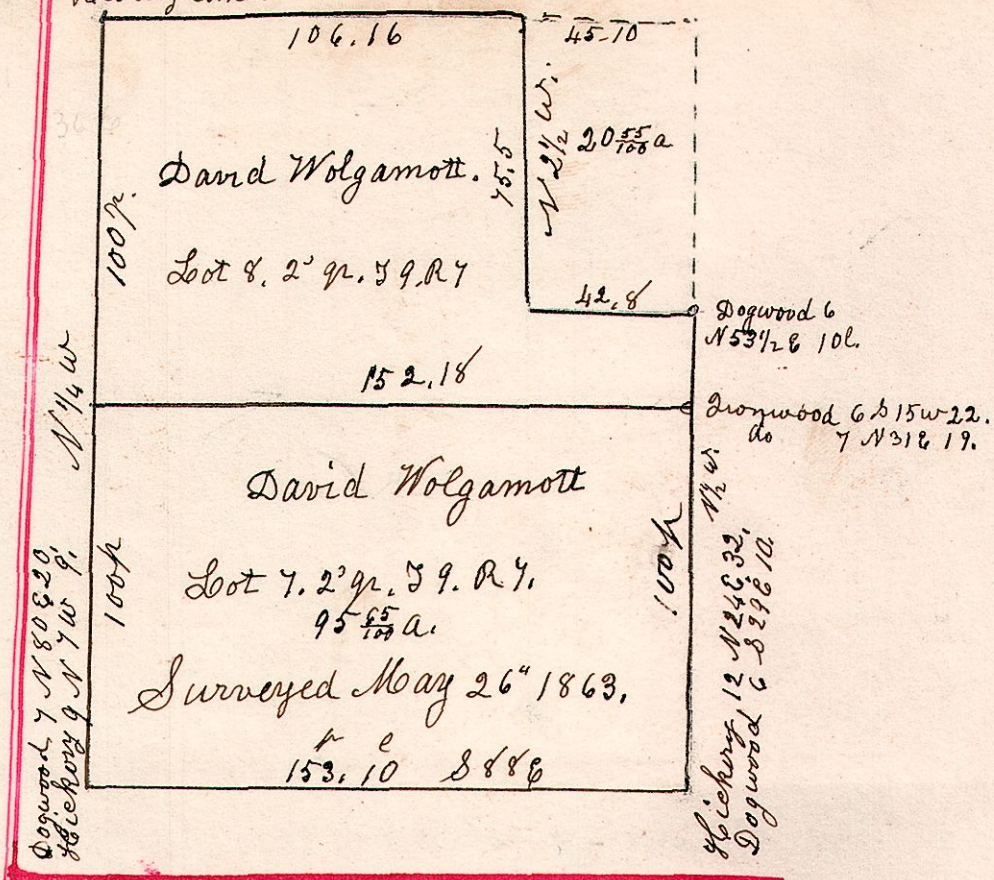 106.16
45.10
David Wolgamott.
75.5
N 2 1/2 W.
20 55/100 a
100 p.
Lot 8. 2d qr. T 9. R 7
42.8
Dogwood 6
N 53 1/2 E 10 l.
N 1/4 W
152.18
Ironwood 6 S 15 w 22.
do 7 N 31 E 19.
David Wolgamott
N 1/2 W.
100 p
100 p
Lot 7. 2d qr. T 9. R 7.
95 65/100 a.
Surveyed May 26" 1863.
p l
153.10 S 88 E
Dogwood 7 N 80 E 20
Hickory 9 N 7 W 9.
Hickory 12 N 24 E 32.
Dogwood 6 S 29 E 10.